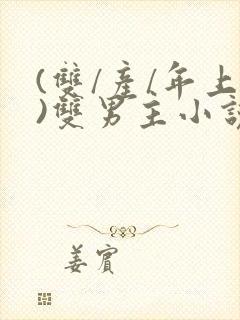 (雙/產/年上
)雙男主小說
姜賓